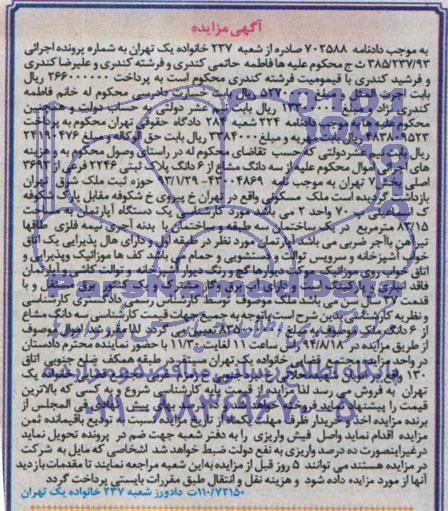 آگهی مزایده
به موجب دادنامه ۷۰۲۵۸۸ صادره از شعبه ۲۳۷ خانواده یک تهران به شماره پرونده اجرائی
۳۸۵/۲۳۷/۹۳ ث ج محکوم علیه ها فاطمه حاتمی کندری و فرشته کندری و علیرضا کندری
و فرشید کندری با قیمومیت فرشته کندری محکوم است به پرداخت ۲۶۶۰۰۰۰۰۰ ریال
بابت اجرت المثل و مبلغ ۵۲۷۰۰۰۰ ریال بابت خسارت دادرسی محکوم له خانم فاطمه
کندری نژاد و مبلغ ریال بابت نیم عشر دولتی به حساب دولت و همچنین
محکوم علیه ها به موجب دادنامه ۲۲۴ شعبه ۲۸۲ دادگاه حقوقی تهران محکوم به پرداخت
۴۸۳۸۰۹۵۲۳ ریال بابت مهریه و مبلغ ۳۳۸۴۰۰۰ ریال بابت حق الوکاله و مبلغ ۲۴۱۹۰۴۷۶
ریال بابت نیم عشر دولتی که حسب تقاضای محکوم له در راستای وصول محکوم به و هزینه
های اجرایی اموال محکوم علیه از سه دانگ مشاع از ۶ دانگ پلاک ثبتی ۲۲۴۶ فرعی از ۳۶۹۳
اصلی بخش ۷ تهران به موجب نامه حوزه ثبت ملک شرق تهران
بازداشت گردیده است ملک مسکونی واقع در تهران خ پیروزی خ شکوفه مقابل پارک شکوفه
ک پ ۷۰ واحد ۲ می باشد مورد کارشناسی یک دستگاه آپارتمان به مساحت
مترمربع در یک ساختمان طبقه و ساختمان با بدنه آجری نیمه فلزی طاقها
تیرآهن با آجر ضربی می باشد آپارتمان مورد نظر در طبقه اول و دارای هال پذیرایی یک اتاق
خواب آشپزخانه و سرویس توالت دستشویی و حمام می باشد کف ها موزائیک و پذیرایی و
اتاق خواب روی موزائیک موکت دیوارها گچ و رنگ دیوار آشپزخانه و توالت کاشی و آپارتمان
فاقد انباری و پارکینگ است و دارای آب برق و گاز مشترک و یک کنتور برق مستقل و با
قدمت سال می باشد ملک موصوف توسط کارشناس رسمی دادگستری کارشناسی
و نظریه کارشناسی بدین شرح است با توجه به جمیع جهات قیمت کارشناسی سه دانگ مشاع
از ۶ دانگ ملک موصوف به مبلغ تومان می گردد لذا مقرر شد اموال موصوف
از طریق مزایده در مورخه ۹۴/۸/۱۸ از ساعت ۱۱ لغایت ۱۱/۳۰ با حضور نماینده محترم دادستان
در واحد مزایده مجتمع قضایی خانواده یک تهران مستقر در طبقه همکف ضلع جنوبی اتاق
۱۳ واقع در تهران
تهران به فروش می رسد لذا مزایده از قیمت پایه کارشناسی شروع و به کسی که بالاترین
قیمت را پیشنهاد نماید فروخته خواهد شد و ده درصد بهای پیش فی المجلس از
برنده مزایده اخذ و خریدار ظرف مهلت یکماه از تاریخ مزایده نسبت به تودیع باقیمانده ثمن
مزایده اقدام نماید واصل فیش واریزی را به دفتر شعبه جهت ضم در پرونده تحویل نماید
درغیراینصورت ده درصد واریزی به نفع دولت ضبط خواهد شد اشخاصی که مایل به شرکت
در مزایده هستند می توانند ۵ روز قبل از مزایده به این شعبه مراجعه نمایند تا مقدمات بازدید
آنها از مورد مزایده داده شود و هزینه نقل و انتقال طبق مقررات بایستی پرداخت گردد
۱۱۰/۷۲۱۵۰ت دادورز شعبه ۲۳۷ خانواده یک تهران
ParsNamadData
پایگاه اطلاع رسانی مناقصه و مزایده
۰۲۱-۸۸۳۴۹۶۷۰-۵